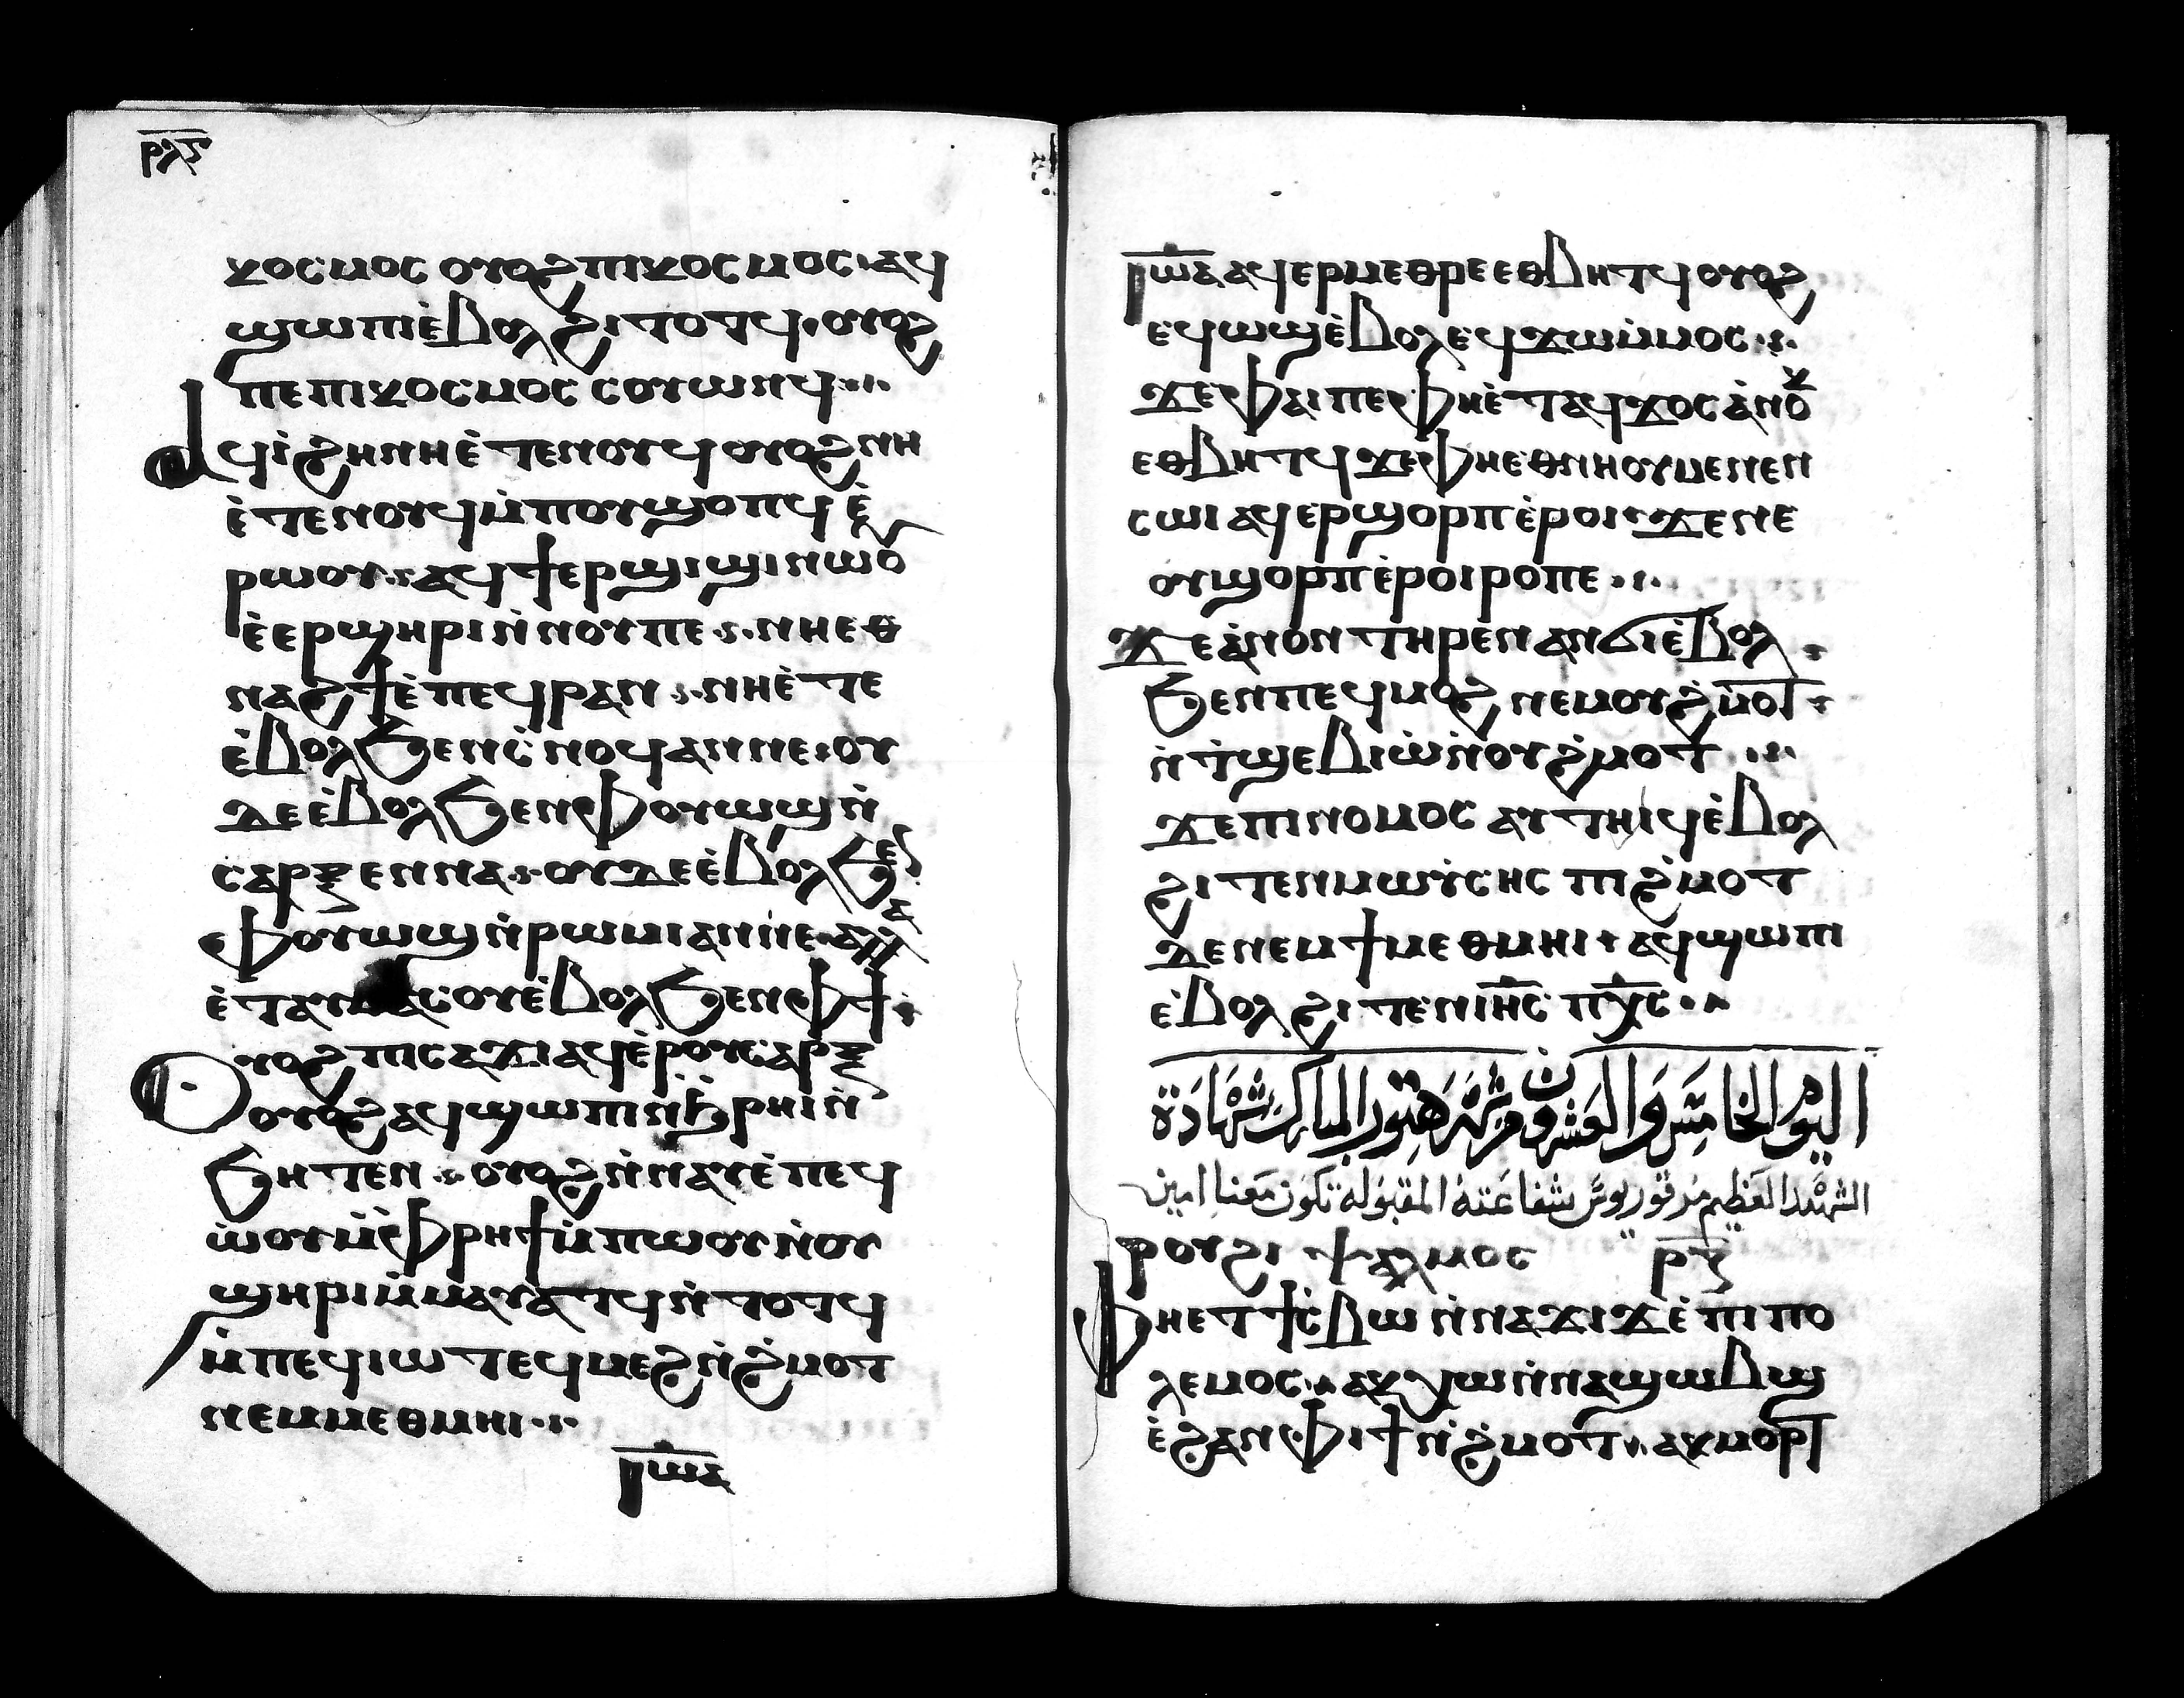 ⲣⲗⲋ
ⲕⲟⲥⲙⲟⲥ ⲟⲩⲟϩ ⲡⲓⲕⲟⲥⲙⲟⲥ ⲁϥ
ϣⲱⲡⲓ ⲉ̇ⲃⲟⲗ ϩⲓⲧⲟⲧϥ · ⲟⲩⲟϩ
ⲡⲉⲡⲓⲕⲟⲥⲙⲟⲥ ⲥⲟⲩⲱⲛϥ ·:·
ⲁϥⲓ̇ ϩⲏⲛⲏⲉ̇ⲧⲉⲛⲟⲩϥ ⲟⲩⲟϩ ⲛⲏ
ⲉ̇ⲧⲉⲛⲟⲩϥ ⲙ̇ⲡⲟⲩϣⲟⲡϥ ⲉ̇
ⲣⲱⲟⲩ · ⲁϥϯⲉⲣϣⲓϣⲓ ⲛⲱⲟ̄
ⲉ̇ⲉⲣϣⲏⲣⲓ ⲛ̇ⲛⲟⲩⲡⲉ · ⲛⲏⲉⲑ
ⲛⲁϩϯ ⲉ̇ⲡⲉϥⲣⲁⲛ · ⲛⲏⲉ̇ⲧⲉ
ⲉ̇ⲃⲟⲗ ϧⲉⲛⲥ̇ⲛⲟϥ ⲁⲛ ⲛⲉ · ⲟⲩ
ⲇⲉ ⲉ̇ⲃⲟⲗ ϧⲉⲛ ⲫⲟⲩⲱϣ ⲛ̇
ⲥⲁⲣⲝ ⲉⲛⲛⲁ · ⲟⲩⲇⲉ ⲉ̇ⲃⲟⲗ ϧⲉⲛ
ⲫⲟⲩⲱϣ ⲛ̇ⲣⲱⲙⲓ ⲁⲛ ⲛⲉ · ⲁⲗⲗⲁ
ⲉ̇ⲧⲁⲩⲙⲁⲥⲟⲩ ⲉ̇ⲃⲟⲗ ϧⲉⲛ ⲫϯ ·
Ⲟⲩⲟϩ ⲡⲓⲥⲁϫⲓ ⲁϥⲉ̇ⲣⲟⲩⲥⲁⲣⲝ
ⲟⲩⲟϩ ⲁϥϣⲱⲡⲓ ⲛ̇ϩ̇ⲣⲏⲓ ⲛ̇
ϧⲏⲧⲉⲛ · ⲟⲩⲟϩ ⲛ̇ⲛⲁⲩ ⲉ̇ⲡⲉϥ
ⲱ̇ⲟⲩ ⲙ̇ⲫⲣⲏϯ ⲙ̇ⲡⲱⲟⲩ ⲛ̇ⲟⲩ
ϣⲏⲣⲓ ⲙ̇ⲙⲁⲩⲁⲧϥ ⲛ̇ⲧⲟⲧϥ
ⲙ̇ⲡⲉϥⲓⲱⲧ ⲉϥⲙⲉϩ ⲛ̇ϩ̇ⲙⲟⲧ
ⲛⲉⲙ ⲙⲉⲑⲙⲏⲓ ·:·
ⲓ̅ⲱ̅ⲁ̅
ⲓ̅ⲱ̅ⲁ̅ ⲁϥⲉⲣⲙⲉⲑⲣⲉ ⲉⲑⲃⲏⲧϥ ⲟⲩⲟϩ
ⲉϥⲱϣ ⲉ̇ⲃⲟⲗ ⲉϥϫⲱⲙ̇ⲙⲟⲥ ·:·
ϫⲉ ⲫⲁⲓ ⲡⲉ ⲫⲏⲉ̇ⲧⲁϥϫⲟⲥ ⲁ̇ⲛⲟⲕ
ⲉⲑⲃⲏⲧϥ ϫⲉ ⲫⲏⲉⲑⲛⲏⲟⲩ ⲙⲉⲛⲉⲛ
ⲥⲱⲓ ⲁϥⲉⲣϣⲟⲣⲡ ⲉ̇ⲣⲟⲓ · ϫⲉ ⲛⲉ
ⲟⲩϣⲟⲣⲡ ⲉ̇ⲣⲟⲓ ⲣⲟⲡⲉ ·:·
ϫⲉ ⲁ̇ⲛⲟⲛ ⲧⲏⲣⲉⲛ ⲁⲛϭⲓ ⲉ̇ⲃⲟⲗ
ϧⲉⲛ ⲡⲉϥⲙⲟϩ ⲛⲉⲙ ⲟⲩϩ̇ⲙⲟⲧ
ⲛ̇ⲧ̇ϣⲉⲃⲓⲱ̇ ⲛ̇ⲟⲩϩ̇ⲙⲟⲧ ·:·
ϫⲉ ⲡⲓⲛⲟⲙⲟⲥ ⲁⲩⲧⲏⲓϥ ⲉ̇ⲃⲟⲗ
ϩⲓⲧⲉⲛ ⲙⲱⲩ̇ⲥⲏⲥ ⲡⲓϩ̇ⲙⲟⲧ
ⲇⲉ ⲛⲉⲙ ϯⲙⲉⲑⲙⲏⲓ · ⲁϥϣⲱⲡⲓ
ⲉ̇ⲃⲟⲗ ϩⲓⲧⲉⲛ ⲓⲏ̅ⲥ̅ ⲡⲭ̅ⲥ̅ ·
اليوم الخامِسَ وَالعشرون من شهر هَتور المبارك شهَادَة
الشهيد العَظيم مرقوريوس شفاعَته المقبوله تكون معَنا امين
ⲣⲟⲩϩⲓ ⲯⲁⲗⲙⲟⲥ ⲣ̅ⲍ̅
Ⲫⲏⲉⲧϯⲥ̇ⲃⲱ ⲛ̇ⲛⲁϫⲓϫ ⲉ̇ⲡⲓⲡⲟ
ⲗⲉⲙⲟⲥ · ⲁⲕⲭⲱ ⲛ̇ⲛⲁϣⲱⲃϣ
ⲉ̇ϩⲁⲛⲫⲓϯ ⲛ̇ϩ̇ⲙⲟⲧ · ⲁⲕⲙⲟⲣⲧ